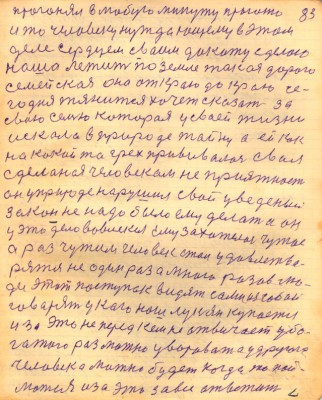 прогонял в любую минуту прогоню 83
и то человеку нуждающему в этом
деле сердцем сваим докажу сделаю
наша летит по земле такая дорого
семейская она от краю до краю се-
годня тянится хочет сказат за
свою семью которая у своей жизни
искала в природе тайну а ей как
на какой то грех прививалас свая
сделаная человекам не приятност
он у природе нарушил свой уведеный
закон не надо было ему делат а он
у это дело вовлекся ему захотелос чужое
а раз чужим человек стал удовлетво-
рятся не один раз а много разов лю-
ди этот поступак видят самим собой
говарят у каго нош лунян купается
из за это не перед кем не отвичает у бо-
гатого раз можно уворовать а у другого
человека можно будет когда то пой-
мается и за это зави ответит